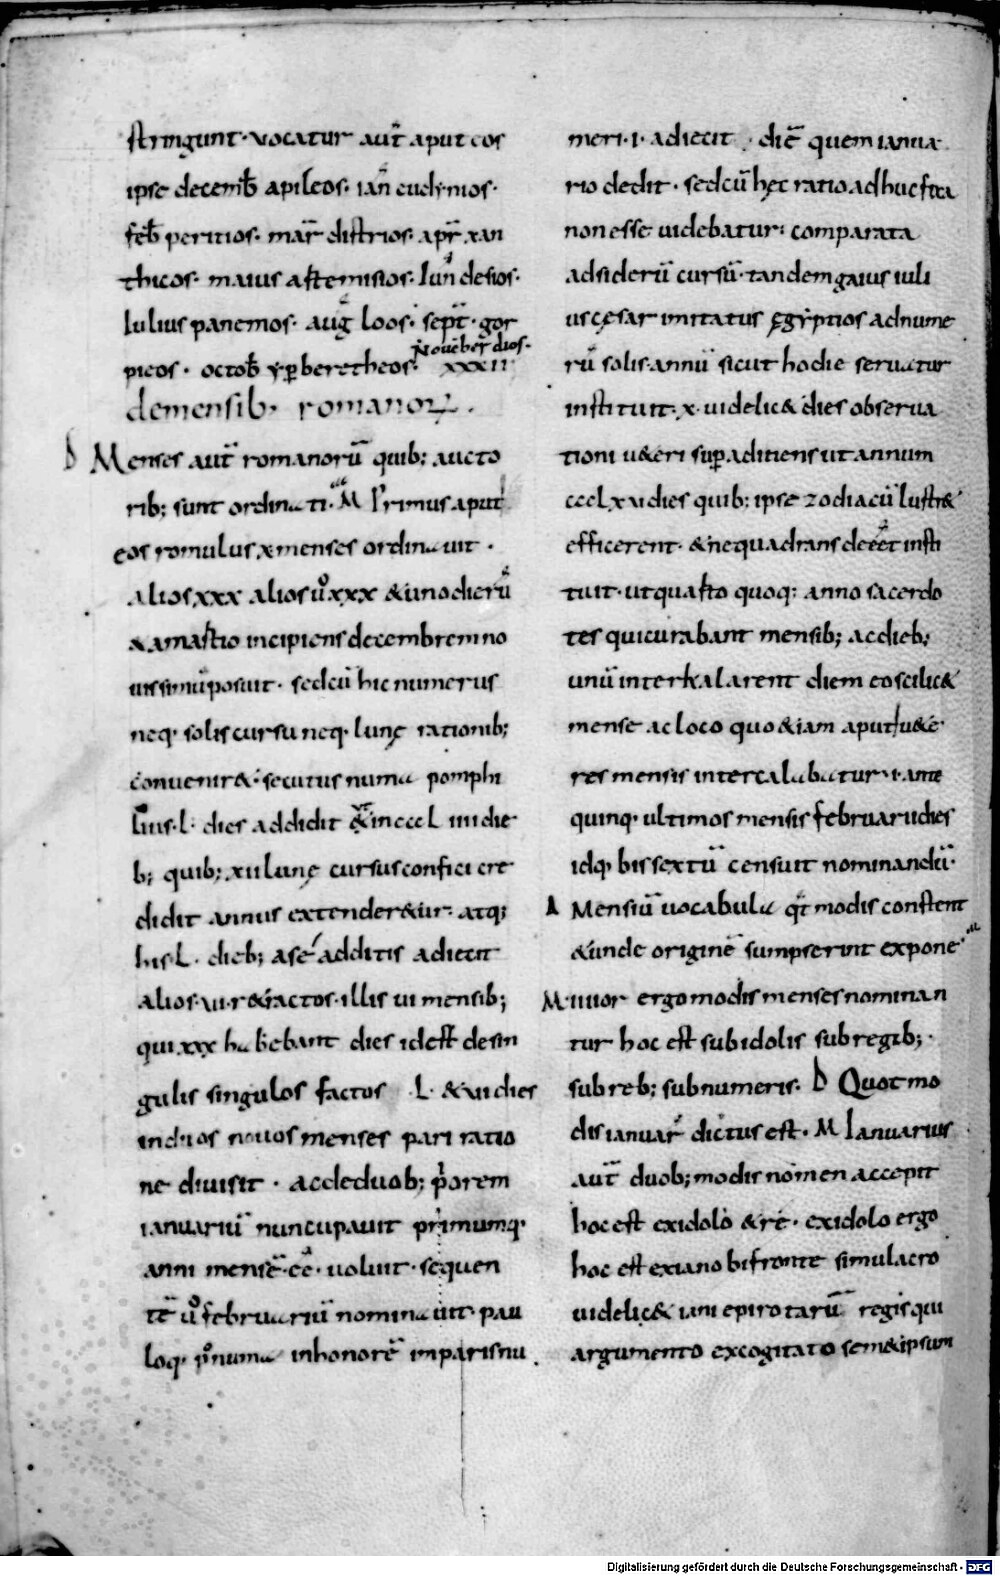 stringunt· vocatur aut̄ aput eos
ipse decemb̄ apileos· ian̄ eudynios·
feb̄ peritios· mar̄ distrios· apr̄ xan
thicos· maius artemisios· Iun̄ desios·
Iulius panemos· auḡ loos· sept̄· gor
pieos· octob̄ yꝑberetheos·
Nouēber̄ dios·
xxxii
demensib; romanoꝝ.
D Menses aut̄ romanorū quib; aucto
rib; sunt ordinati· M Primus aput
eos romulus x menses ordinauit·
alios xxx alios ů xxx &uno dierū
& amartio incipiens decembrem no
uissimū posuit· sedcū hic numerus
neq· solis cursu neq· lunę rationib;
conuenir&· secutus numa pomphi
lius· L· dies addidit & in cccc L iiii die
b; quib; xii lunę cursus confici cre
didit annus extender&ur· atq;
his· L· dieb; a sé additis adiecit
alios· ui· r&factos· illis ui mensib;
qui xxx habebant dies idest desin
gulis singulos factos L· &ui dies
induos nouos menses pari ratio
ne diuisit· acdeduob; p̍orem
ianuariū nuncupauit primumq·
anni mensē· eē· uoluit· sequen
tē ů februariū nominauit· pau
loq· p̊ numa inhonorē imparis nu
meri· i· adiecit· diē quem ianua
rio dedit· sedcū hęc ratio adhuc ficta
non esse uidebatur· comparata
adsiderū cursū· tandem gaius iuli
us cęsar imitatus ęgyptios ad nume
rū solis· annū sicut hodie seruatur
instituit· x· uidelic& dies obserua
tioni u&eri suꝑ adiciens ut annum
ccc Lxui dies quib; ipse zodiacū lustr&
efficerent· & ne quadrans deeēt insti
tuit· ut quarto quoq· anno sacerdo
tes qui curabant mensib; ac dieb;
unū interkalarent diem eoscilic&
mense ac loco quo &iam aput u&e
res mensis intercalabatur· i· ante
quinq· ultimos mensis februarii dies
idq· bissextū censuit nominandū·
A Mensiū uocabula qt̄ modis constent
& unde originē sumpserint expone
M· iiiior ergo modis menses nominan
tur hoc est sub idolis sub regib;·
sub reb; sub numeris· D Quot mo
dis ianuar̄ dictus est· M Ianuarius
aut̄ duob; modis nomen accepit
hoc est exidolo & re· exidolo ergo
hoc est exiano bifronte simulacro
uidelic& iani epirotarū regis qui
argumento excogitato sem&ipsum
Digitalisierung gefördert durch die Deutsche Forschungsgemeinschaft - DFG